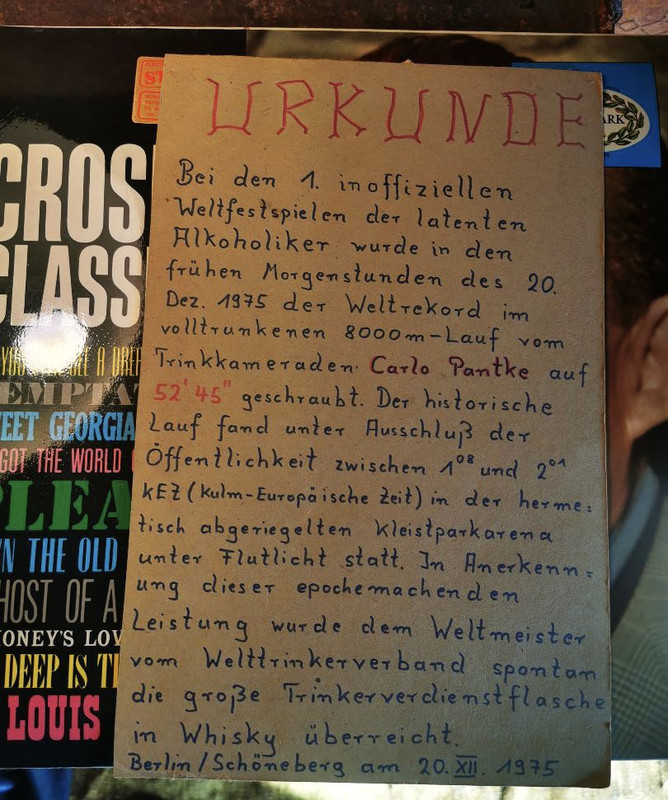 URKUNDE
Bei den 1. inoffiziellen
Weltfestspielen der latenten
Alkoholiker wurde in den
frühen Morgenstunden des 20.
Dez. 1975 der Weltrekord im
volltrunkenen 8000m-Lauf vom
Trinkkameraden Carlo Pantke auf
52' 45" geschraubt. Der historische
Lauf fand unter Ausschluß der
Öffentlichkeit zwischen 1⁰⁸ und 2⁰¹
KEZ (Kulm-Europäische Zeit) in der herme=
tisch abgeriegelten Kleistparkarena
unter Flutlicht statt. In Anerkenn=
ung dieser epochemachenden
Leistung wurde dem Weltmeister
vom Welttrinkerverband spontan
die große Trinkerverdienstflasche
in Whisky überreicht.
Berlin/Schöneberg am 20. XII. 1975
CROS
CLASS
EMPTA
EET GEORGIA
GOT THE WORLD
PLEA
N THE OLD
HOST OF A
ONEY'S LOV
DEEP IS T
LOUIS
ST
ARK